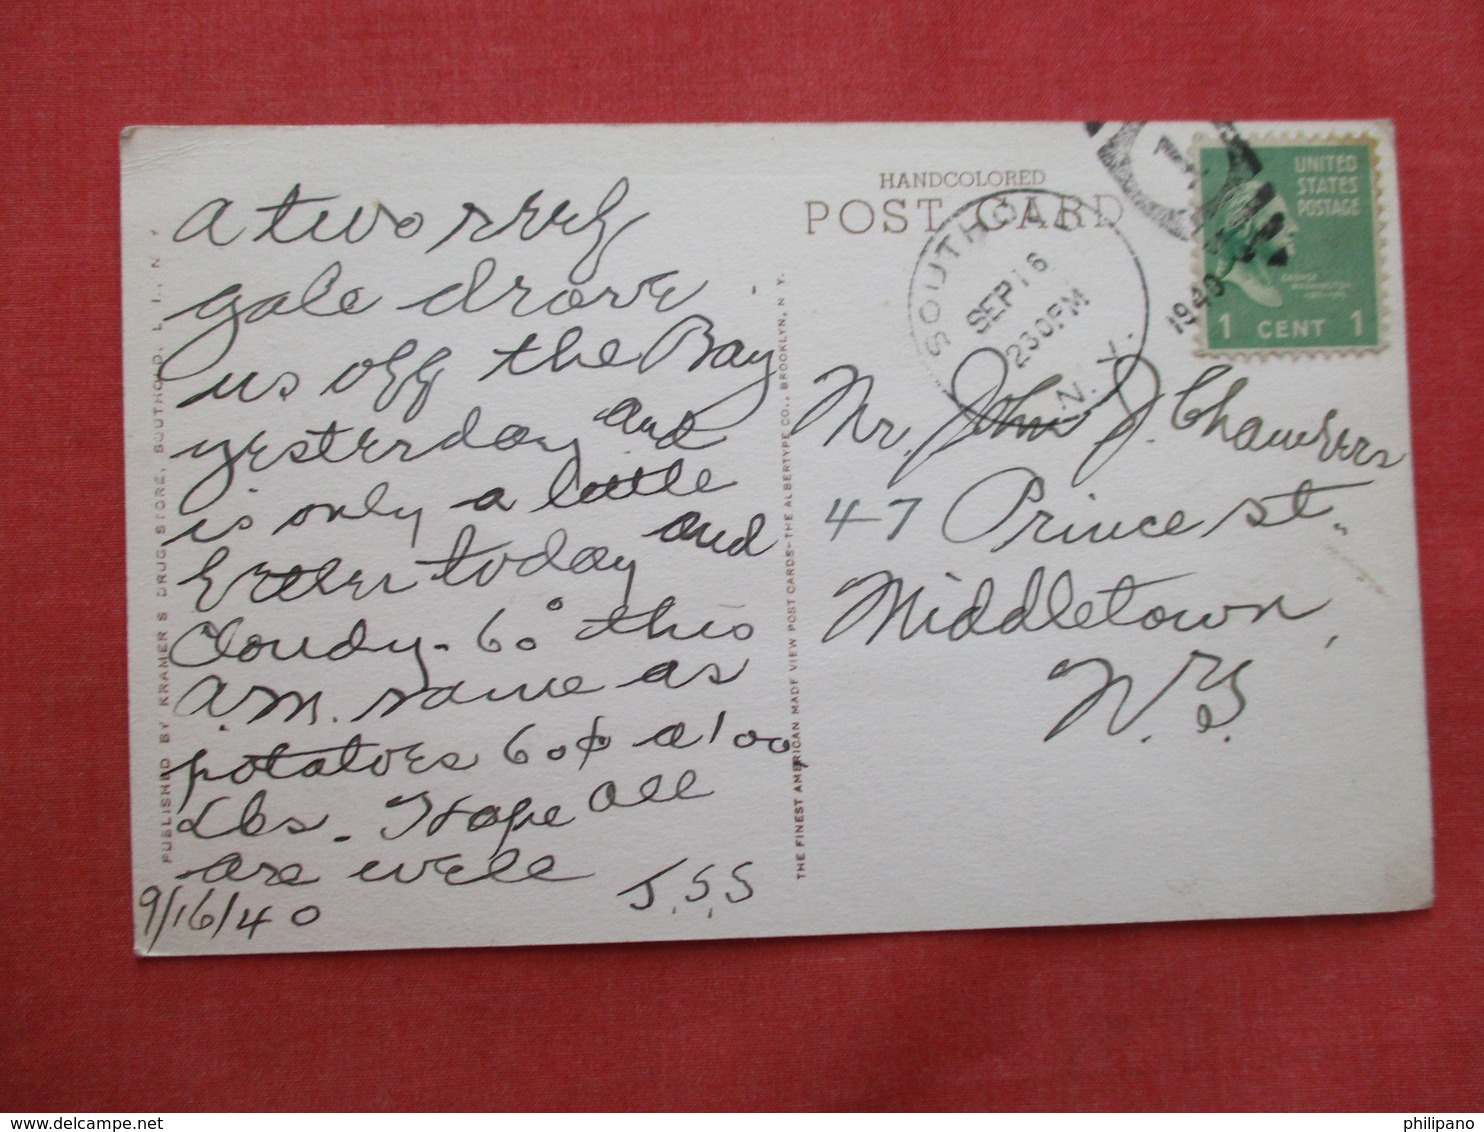 a two reef
gale drove
us off the Bay
yesterday and
is only a little
better today and
Cloudy - 60° this
a.m. same as
potatoes 60¢ a 100
Lbs - Hope all
are well
J.S.S
9/16/40
PUBLISHED BY KRAMER'S DRUG STORE, SOUTHOLD, L. I., N.
THE FINEST AMERICAN MADE VIEW POST CARDS—THE ALBERTYPE CO., BROOKLYN, N. Y.
HANDCOLORED
POST CARD
SOUTHOLD
SEP 16
230PM
1940
N. Y.
UNITED
STATES
POSTAGE
GEORGE
WASHINGTON
1 CENT 1
Mr. John J. Chambers
47 Prince st.
Middletown,
N.Y.
philipano